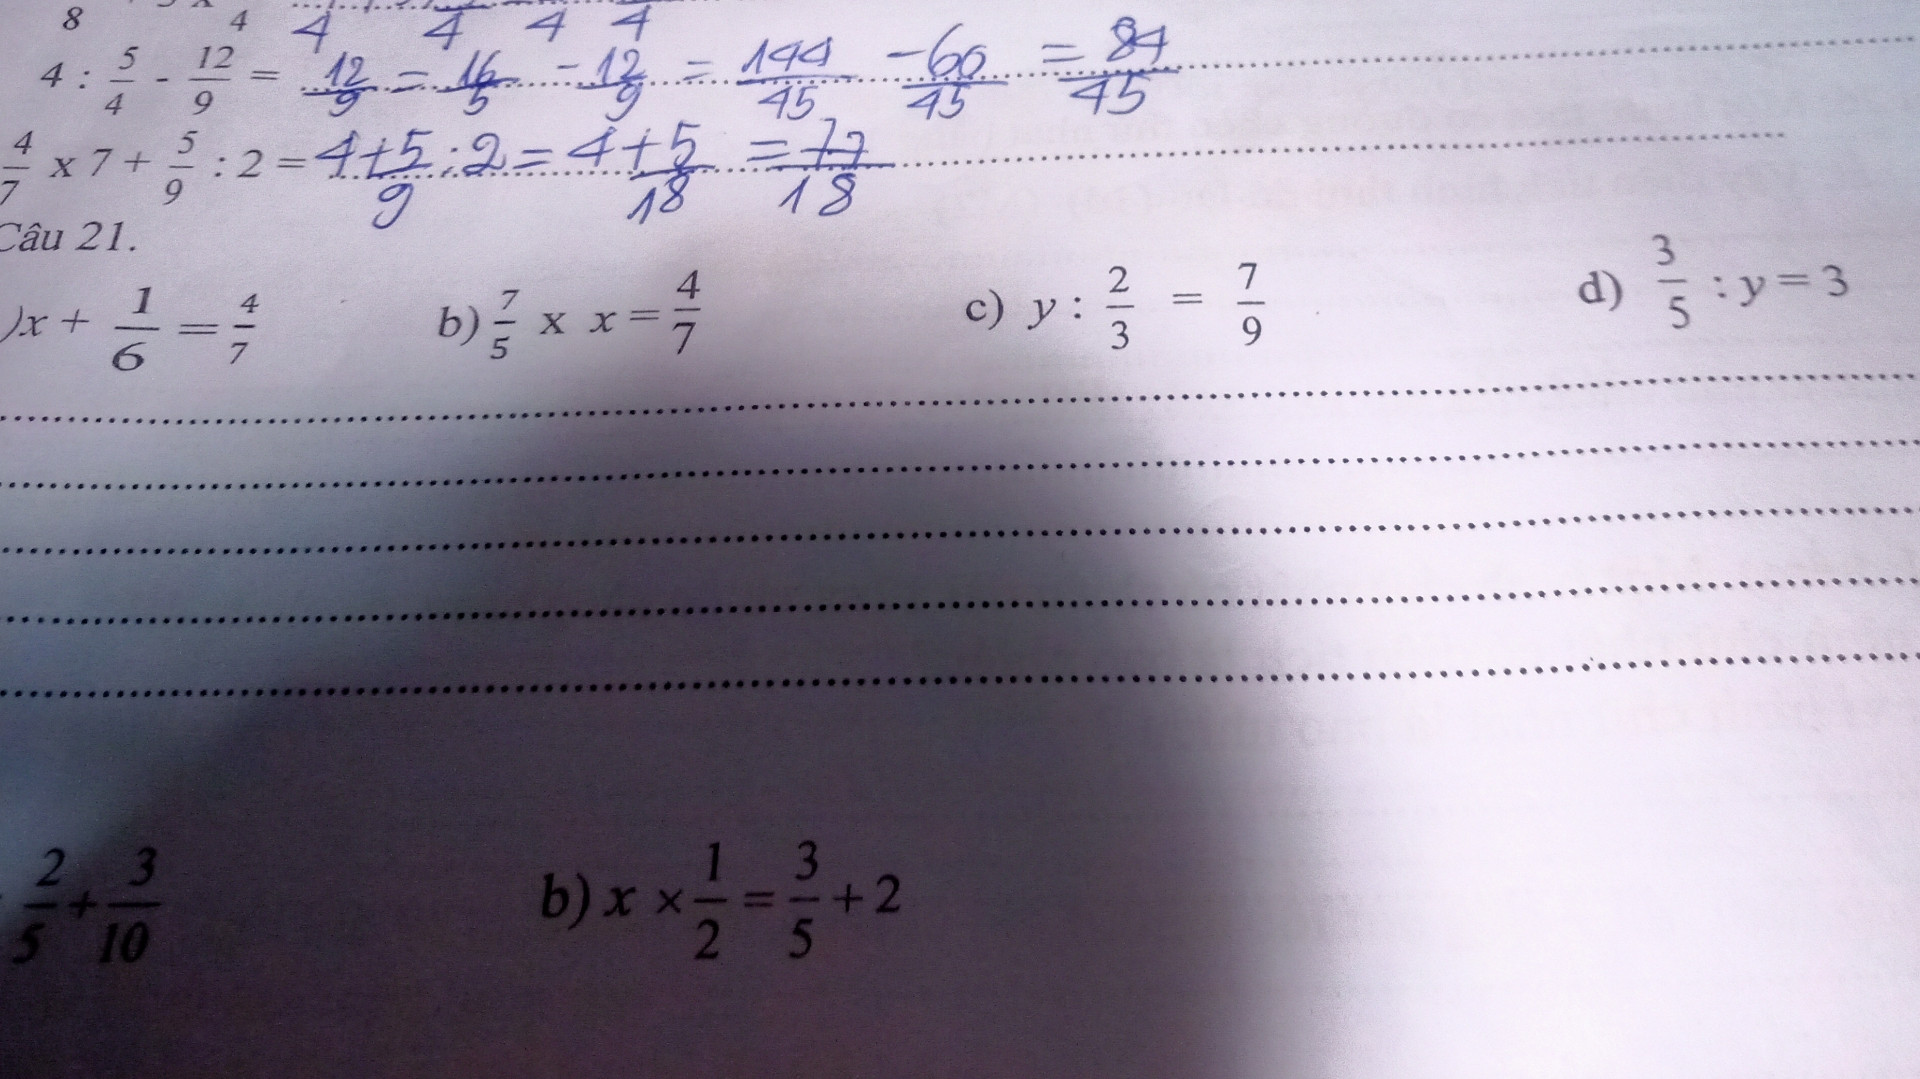 8 4 4 4 4 4
4 : 5/4 - 12/9 = 12/9 = 16/5 - 12/9 = 144/45 - 60/45 = 84/45
4/7 x 7 + 5/9 : 2 = 4+5/9 : 2 = 4+5/18 = 77/18
Câu 21.
)x + 1/6 = 4/7 b) 7/5 x x = 4/7 c) y : 2/3 = 7/9 d) 3/5 : y = 3
2/5 + 3/10 b) x × 1/2 = 3/5 + 2